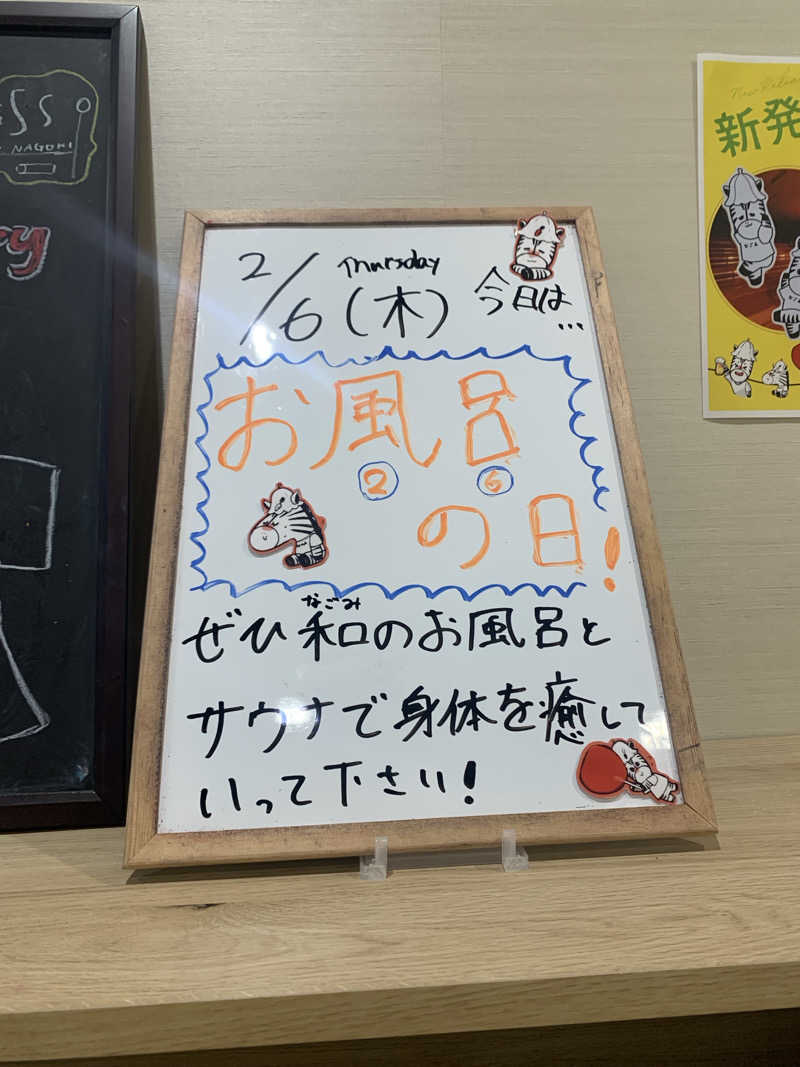 SS
NAGOMI
2/6(木) Thursday 今日は...
お風呂
② ⑥
の日!
なごみ
ぜひ和のお風呂と
サウナで身体を癒して
いって下さい!
新発